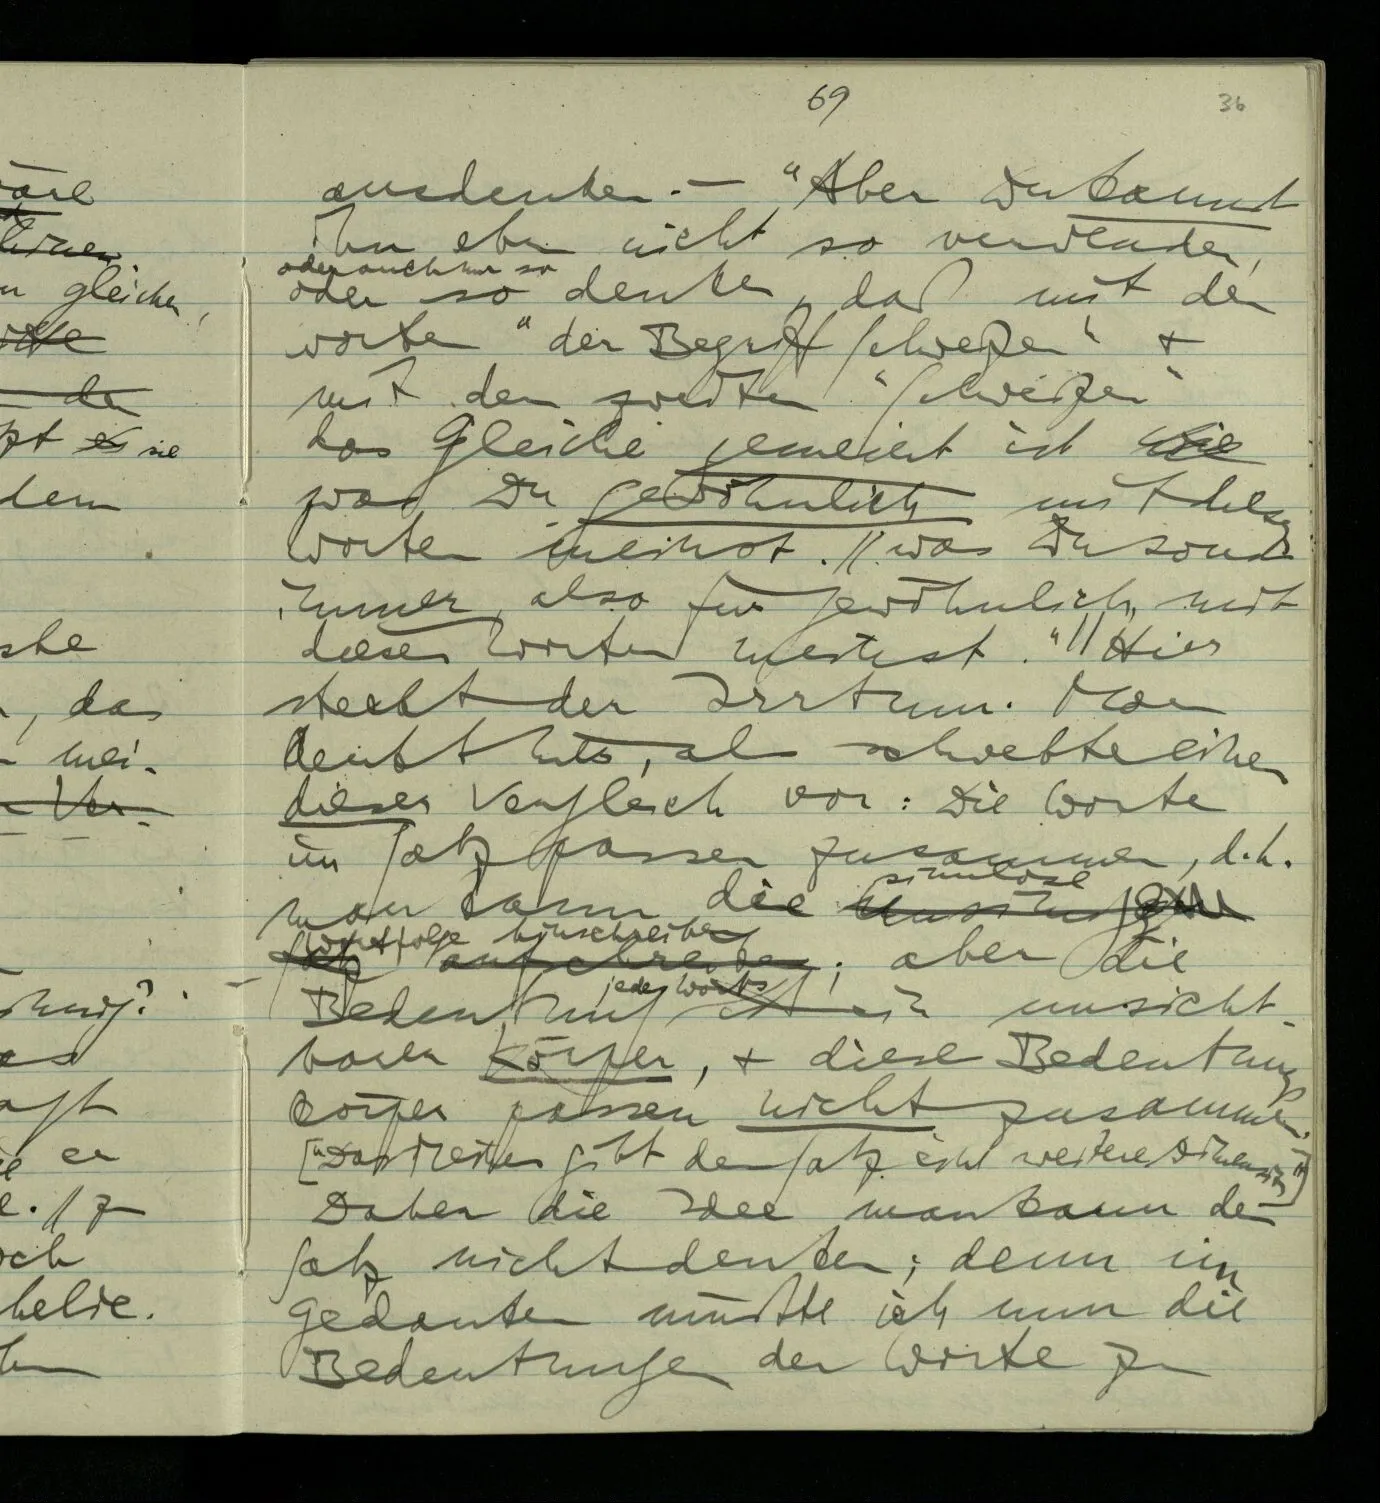 äre
gleichen,
der
es sie
dem
das
mei-
Ver-
er
69
36
ausdenken. — "Aber Du kannst
ihn eben nicht so verwenden,
oder auch nur so
oder so denken, daß mit den
Worten "der Begriff schweißen" &
mit dem zweiten "schweißen"
das Gleiche gemeint ist wie
was Du gewöhnlich mit diesen
Worten meinst. // was Du sonst
immer, also für gewöhnlich, mit
diesen Worten meinst." // Hier
steckt der Irrtum. Man
denkt hier, als schwebte einem
dieser Vergleich vor: Die Worte
im Satz passen zusammen, d.h.
sinnlose
man kann die unsinnigen
Wortfolge hinschreiben
Satz aufschreiben; aber die
jedes Worts
Bedeutung ist ein unsicht-
barer Körper, & diese Bedeutungs
körper passen nicht zusammen.
["Das Meinen gibt dem Satz eine weitere Dimension"]
Daher die Idee man kann den
Satz nicht denken; denn im
Gedanken müßte ich nun die
Bedeutungen der Worte zu